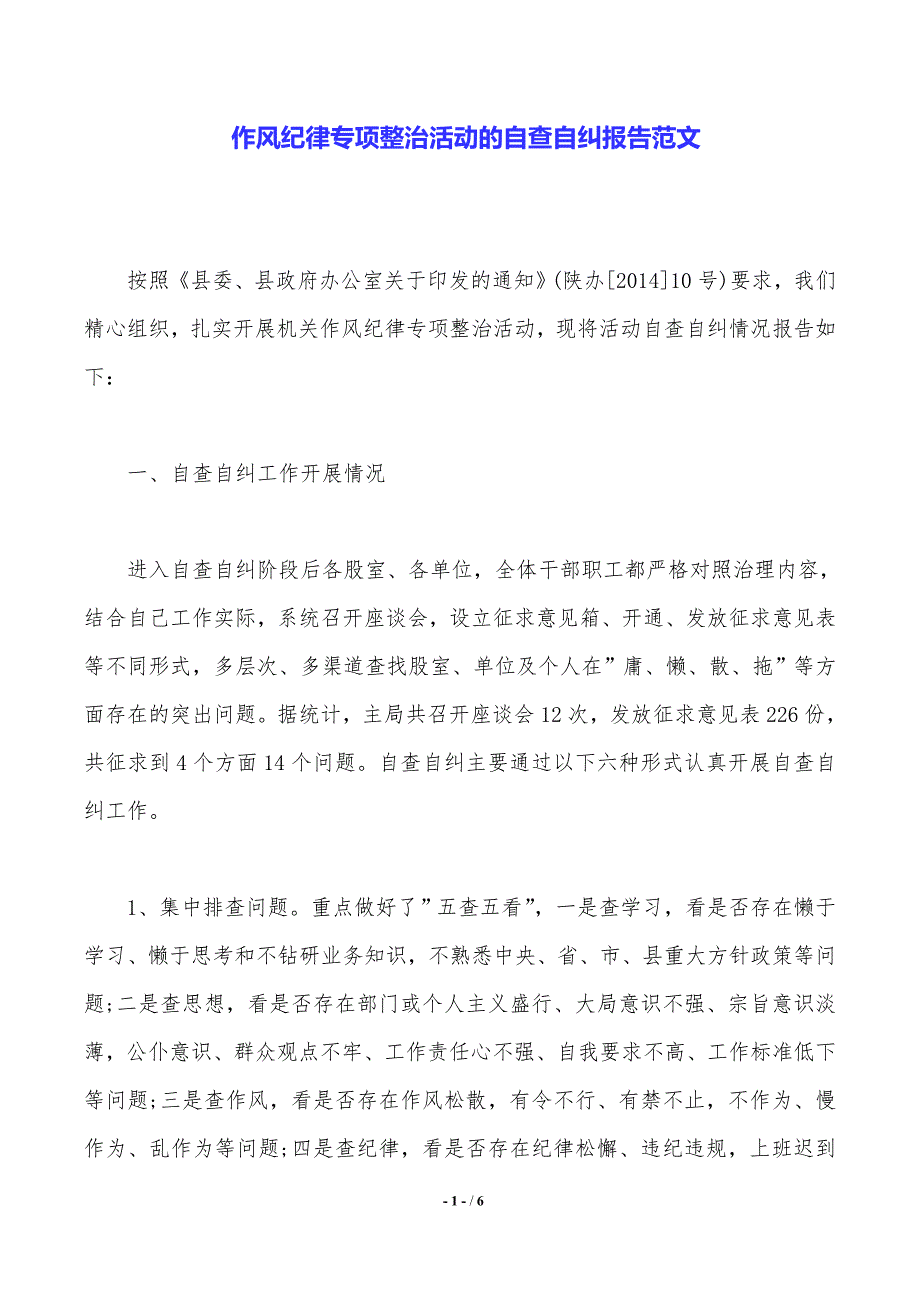 作风纪律专项整治活动的自查自纠报告范文
按照《县委、县政府办公室关于印发的通知》(陕办[2014]10 号)要求，我们
精心组织，扎实开展机关作风纪律专项整治活动，现将活动自查自纠情况报告如
下：
一、自查自纠工作开展情况
进入自查自纠阶段后各股室、各单位，全体干部职工都严格对照治理内容，
结合自己工作实际，系统召开座谈会，设立征求意见箱、开通、发放征求意见表
等不同形式，多层次、多渠道查找股室、单位及个人在”庸、懒、散、拖”等方
面存在的突出问题。据统计，主局共召开座谈会 12 次，发放征求意见表 226 份，
共征求到 4 个方面 14 个问题。自查自纠主要通过以下六种形式认真开展自查自
纠工作。
1、集中排查问题。重点做好了”五查五看”，一是查学习，看是否存在懒于
学习、懒于思考和不钻研业务知识，不熟悉中央、省、市、县重大方针政策等问
题;二是查思想，看是否存在部门或个人主义盛行、大局意识不强、宗旨意识淡
薄，公仆意识、群众观点不牢、工作责任心不强、自我要求不高、工作标准低下
等问题;三是查作风，看是否存在作风松散，有令不行、有禁不止，不作为、慢
作为、乱作为等问题;四是查纪律，看是否存在纪律松懈、违纪违规，上班迟到
- 1 - / 6